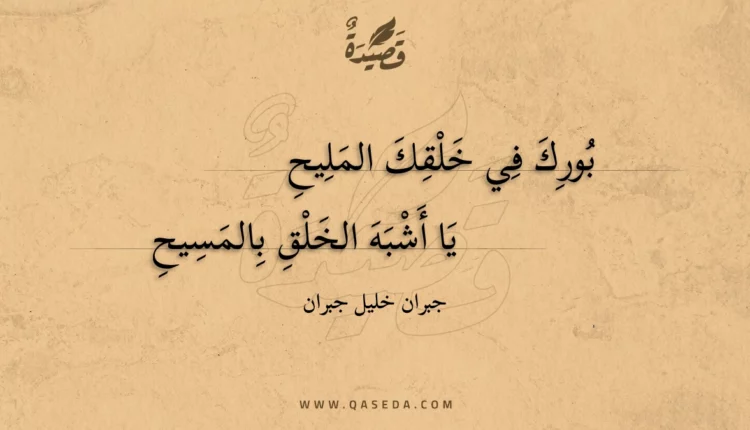 قَصِيدَةٌ
بُورِكَ فِي خَلْقِكَ المَلِيحِ
يَا أَشْبَهَ الخَلْقِ بِالمَسِيحِ
جبران خليل جبران
WWW.QASEDA.COM